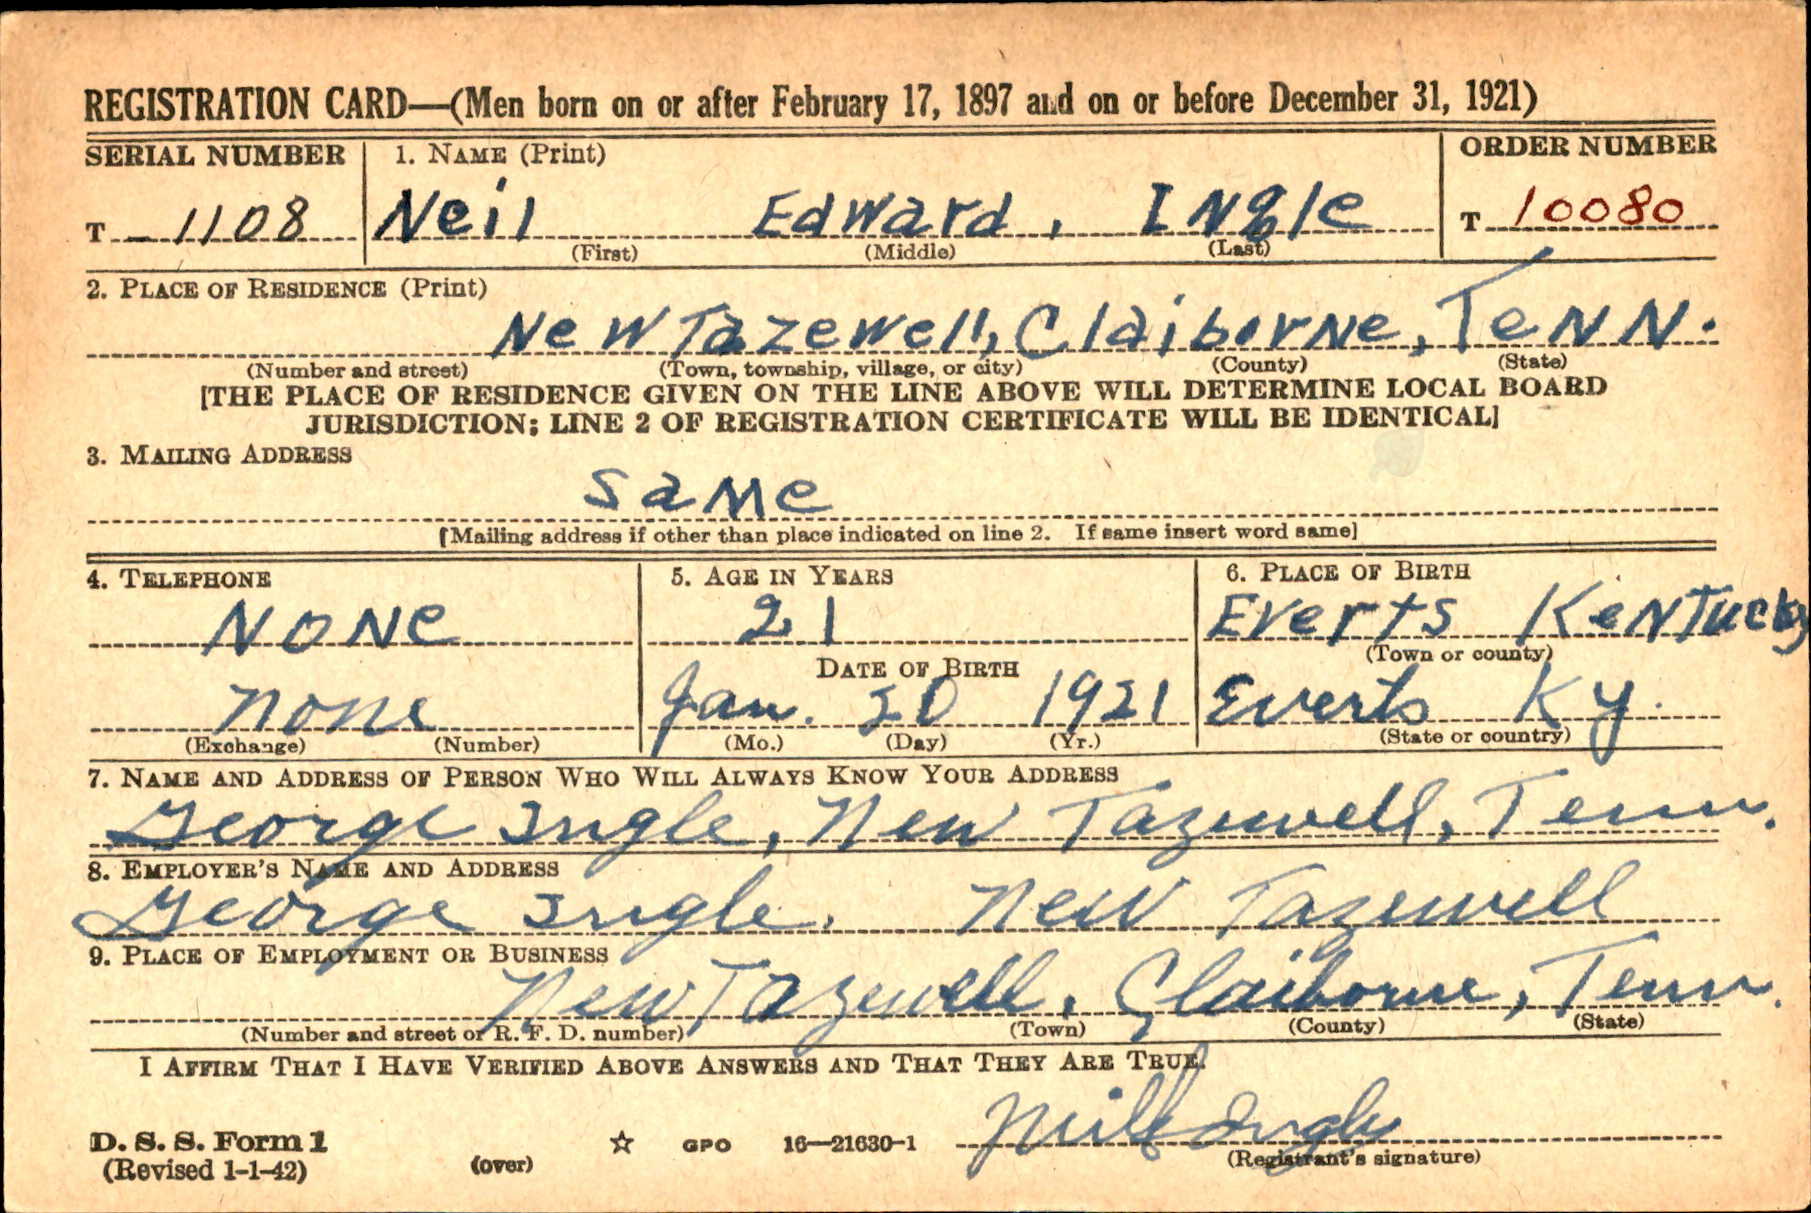 REGISTRATION CARD—(Men born on or after February 17, 1897 and on or before December 31, 1921)
SERIAL NUMBER 1. NAME (Print) ORDER NUMBER
T 1108 Neil Edward, Ingle T 10080
(First) (Middle) (Last)
2. PLACE OF RESIDENCE (Print)
New Tazewell, Claiborne, Tenn.
(Number and street) (Town, township, village, or city) (County) (State)
[THE PLACE OF RESIDENCE GIVEN ON THE LINE ABOVE WILL DETERMINE LOCAL BOARD
JURISDICTION; LINE 2 OF REGISTRATION CERTIFICATE WILL BE IDENTICAL]
3. MAILING ADDRESS
Same
[Mailing address if other than place indicated on line 2. If same insert word same]
4. TELEPHONE 5. AGE IN YEARS 6. PLACE OF BIRTH
None 21 Everts Kentucky
DATE OF BIRTH (Town or county)
none Jan. 20 1921 Everts Ky.
(Exchange) (Number) (Mo.) (Day) (Yr.) (State or country)
7. NAME AND ADDRESS OF PERSON WHO WILL ALWAYS KNOW YOUR ADDRESS
George Ingle, New Tazewell, Tenn.
8. EMPLOYER'S NAME AND ADDRESS
George Ingle. New Tazewell
9. PLACE OF EMPLOYMENT OR BUSINESS
New Tazewell, Claiborne, Tenn.
(Number and street or R. F. D. number) (Town) (County) (State)
I AFFIRM THAT I HAVE VERIFIED ABOVE ANSWERS AND THAT THEY ARE TRUE.
D. S. S. Form 1
(Revised 1-1-42) (over) ☆ GPO 16—21630-1 Neil E Ingle
(Registrant's signature)